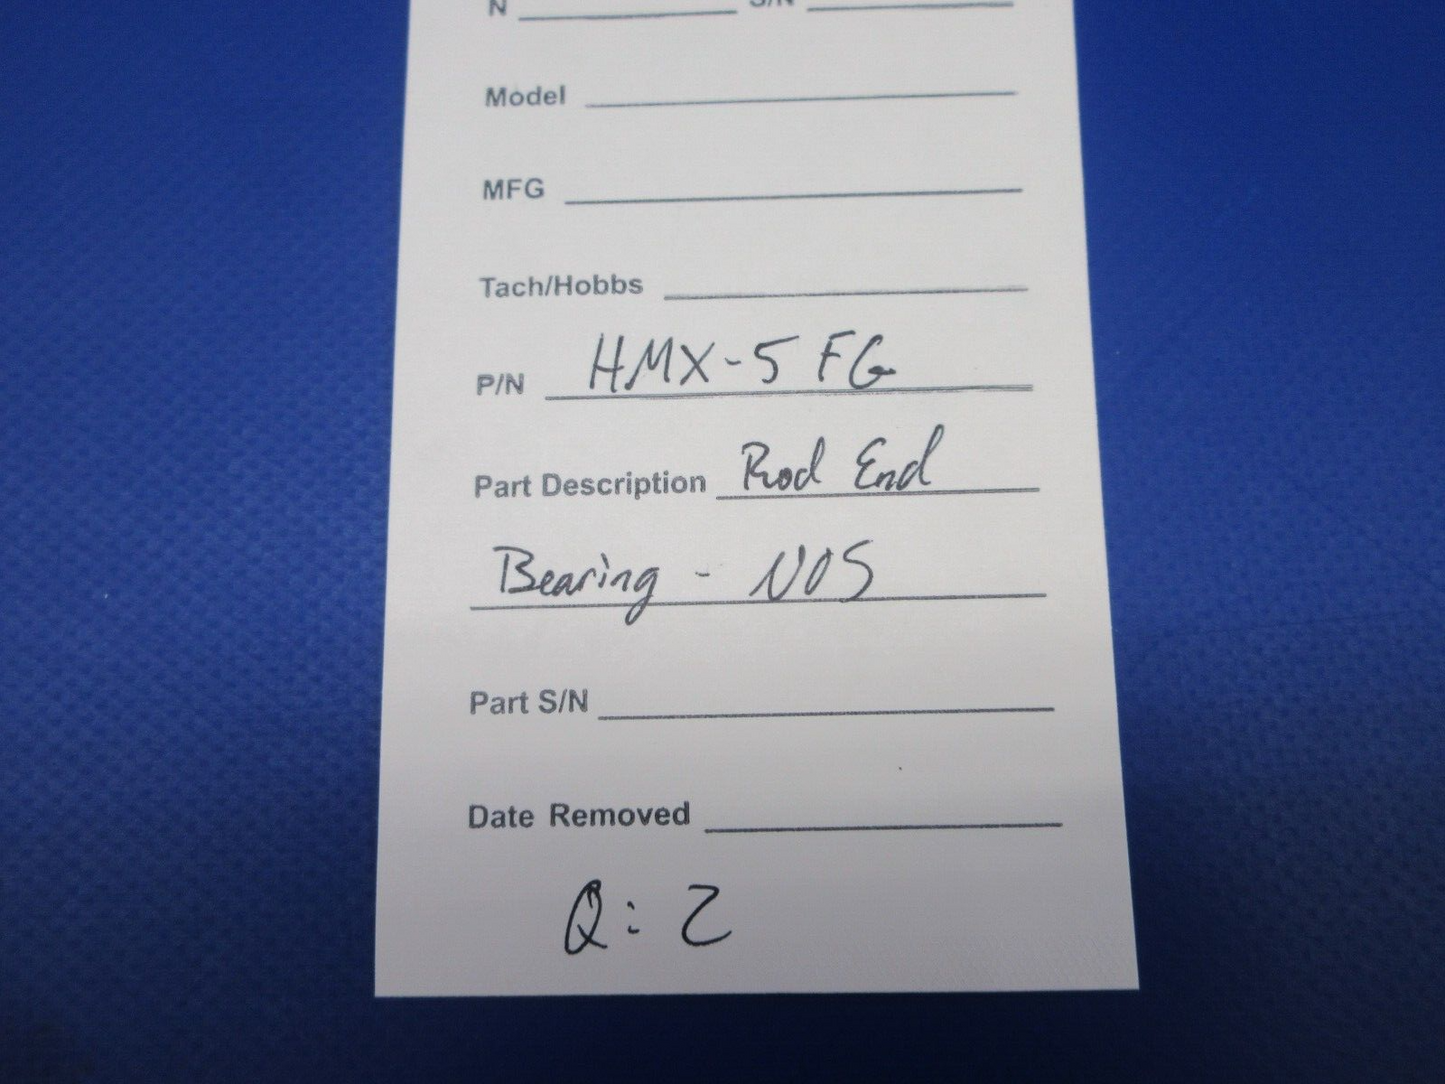 N S/N
Model
MFG
Tach/Hobbs
P/N HMX-5 FG
Part Description Rod End
Bearing - NOS
Part S/N
Date Removed
Q: 2